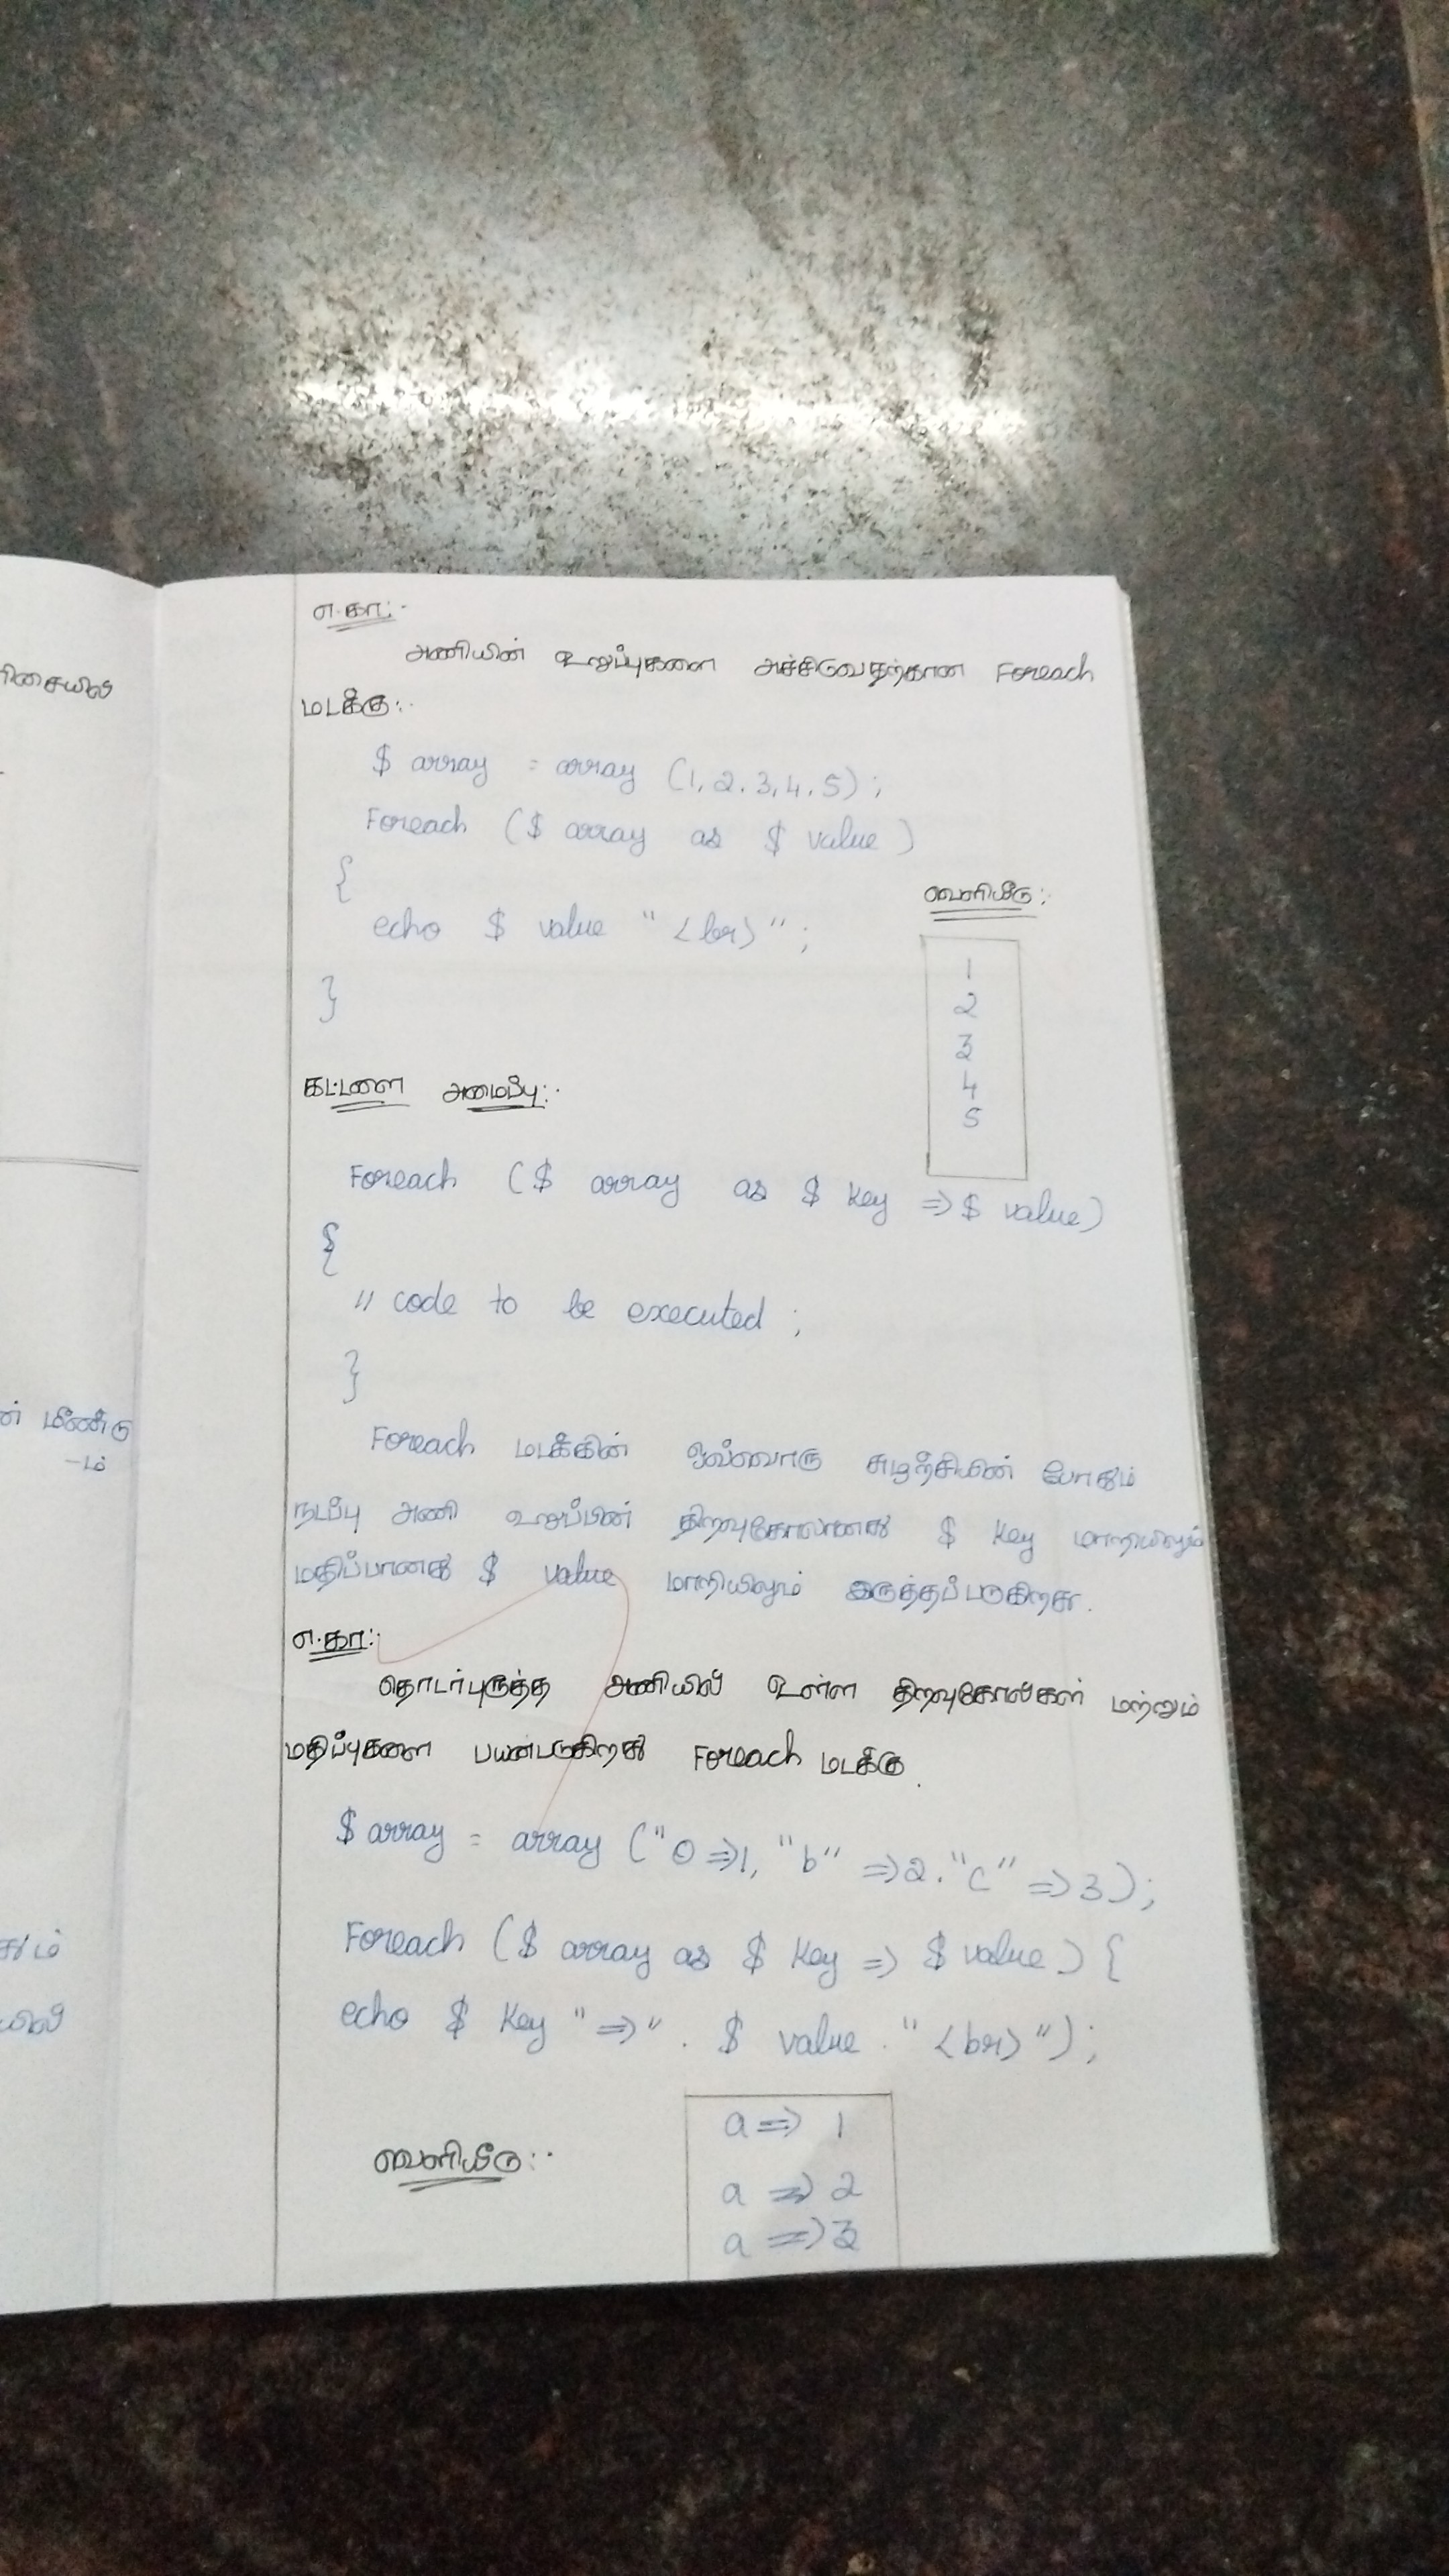 எ.கா:-
அணியின் உறுப்புகளை அச்சிடுவதற்கான Foreach
மடக்கு:-
$ array = array (1, 2, 3, 4, 5) ;
Foreach ($ array as $ value )
{
echo $ value " <br> " ;
}
வெளியீடு:-
1
2
3
4
5
கட்டளை அமைப்பு:-
Foreach ($ array as $ key => $ value)
{
// code to be executed ;
}
Foreach மடக்கின் ஒவ்வொரு சுழற்சியின் போதும்
நடப்பு அணி உறுப்பின் திறவுகோலானது $ key மாறியிலும்
மதிப்பானது $ value மாறியிலும் இருத்தப்படுகிறது.
எ.கா:-
தொடர்புருத்த அணியில் உள்ள திறவுகோல்கள் மற்றும்
மதிப்புகளை பயன்படுகிறது Foreach மடக்கு.
$ array = array ("0 =>1, "b" =>2. "c" => 3);
Foreach ($ array as $ key => $ value ) {
echo $ key "=>" . $ value . " <br> ");
வெளியீடு:-
a => 1
a => 2
a => 3
மீண்டு